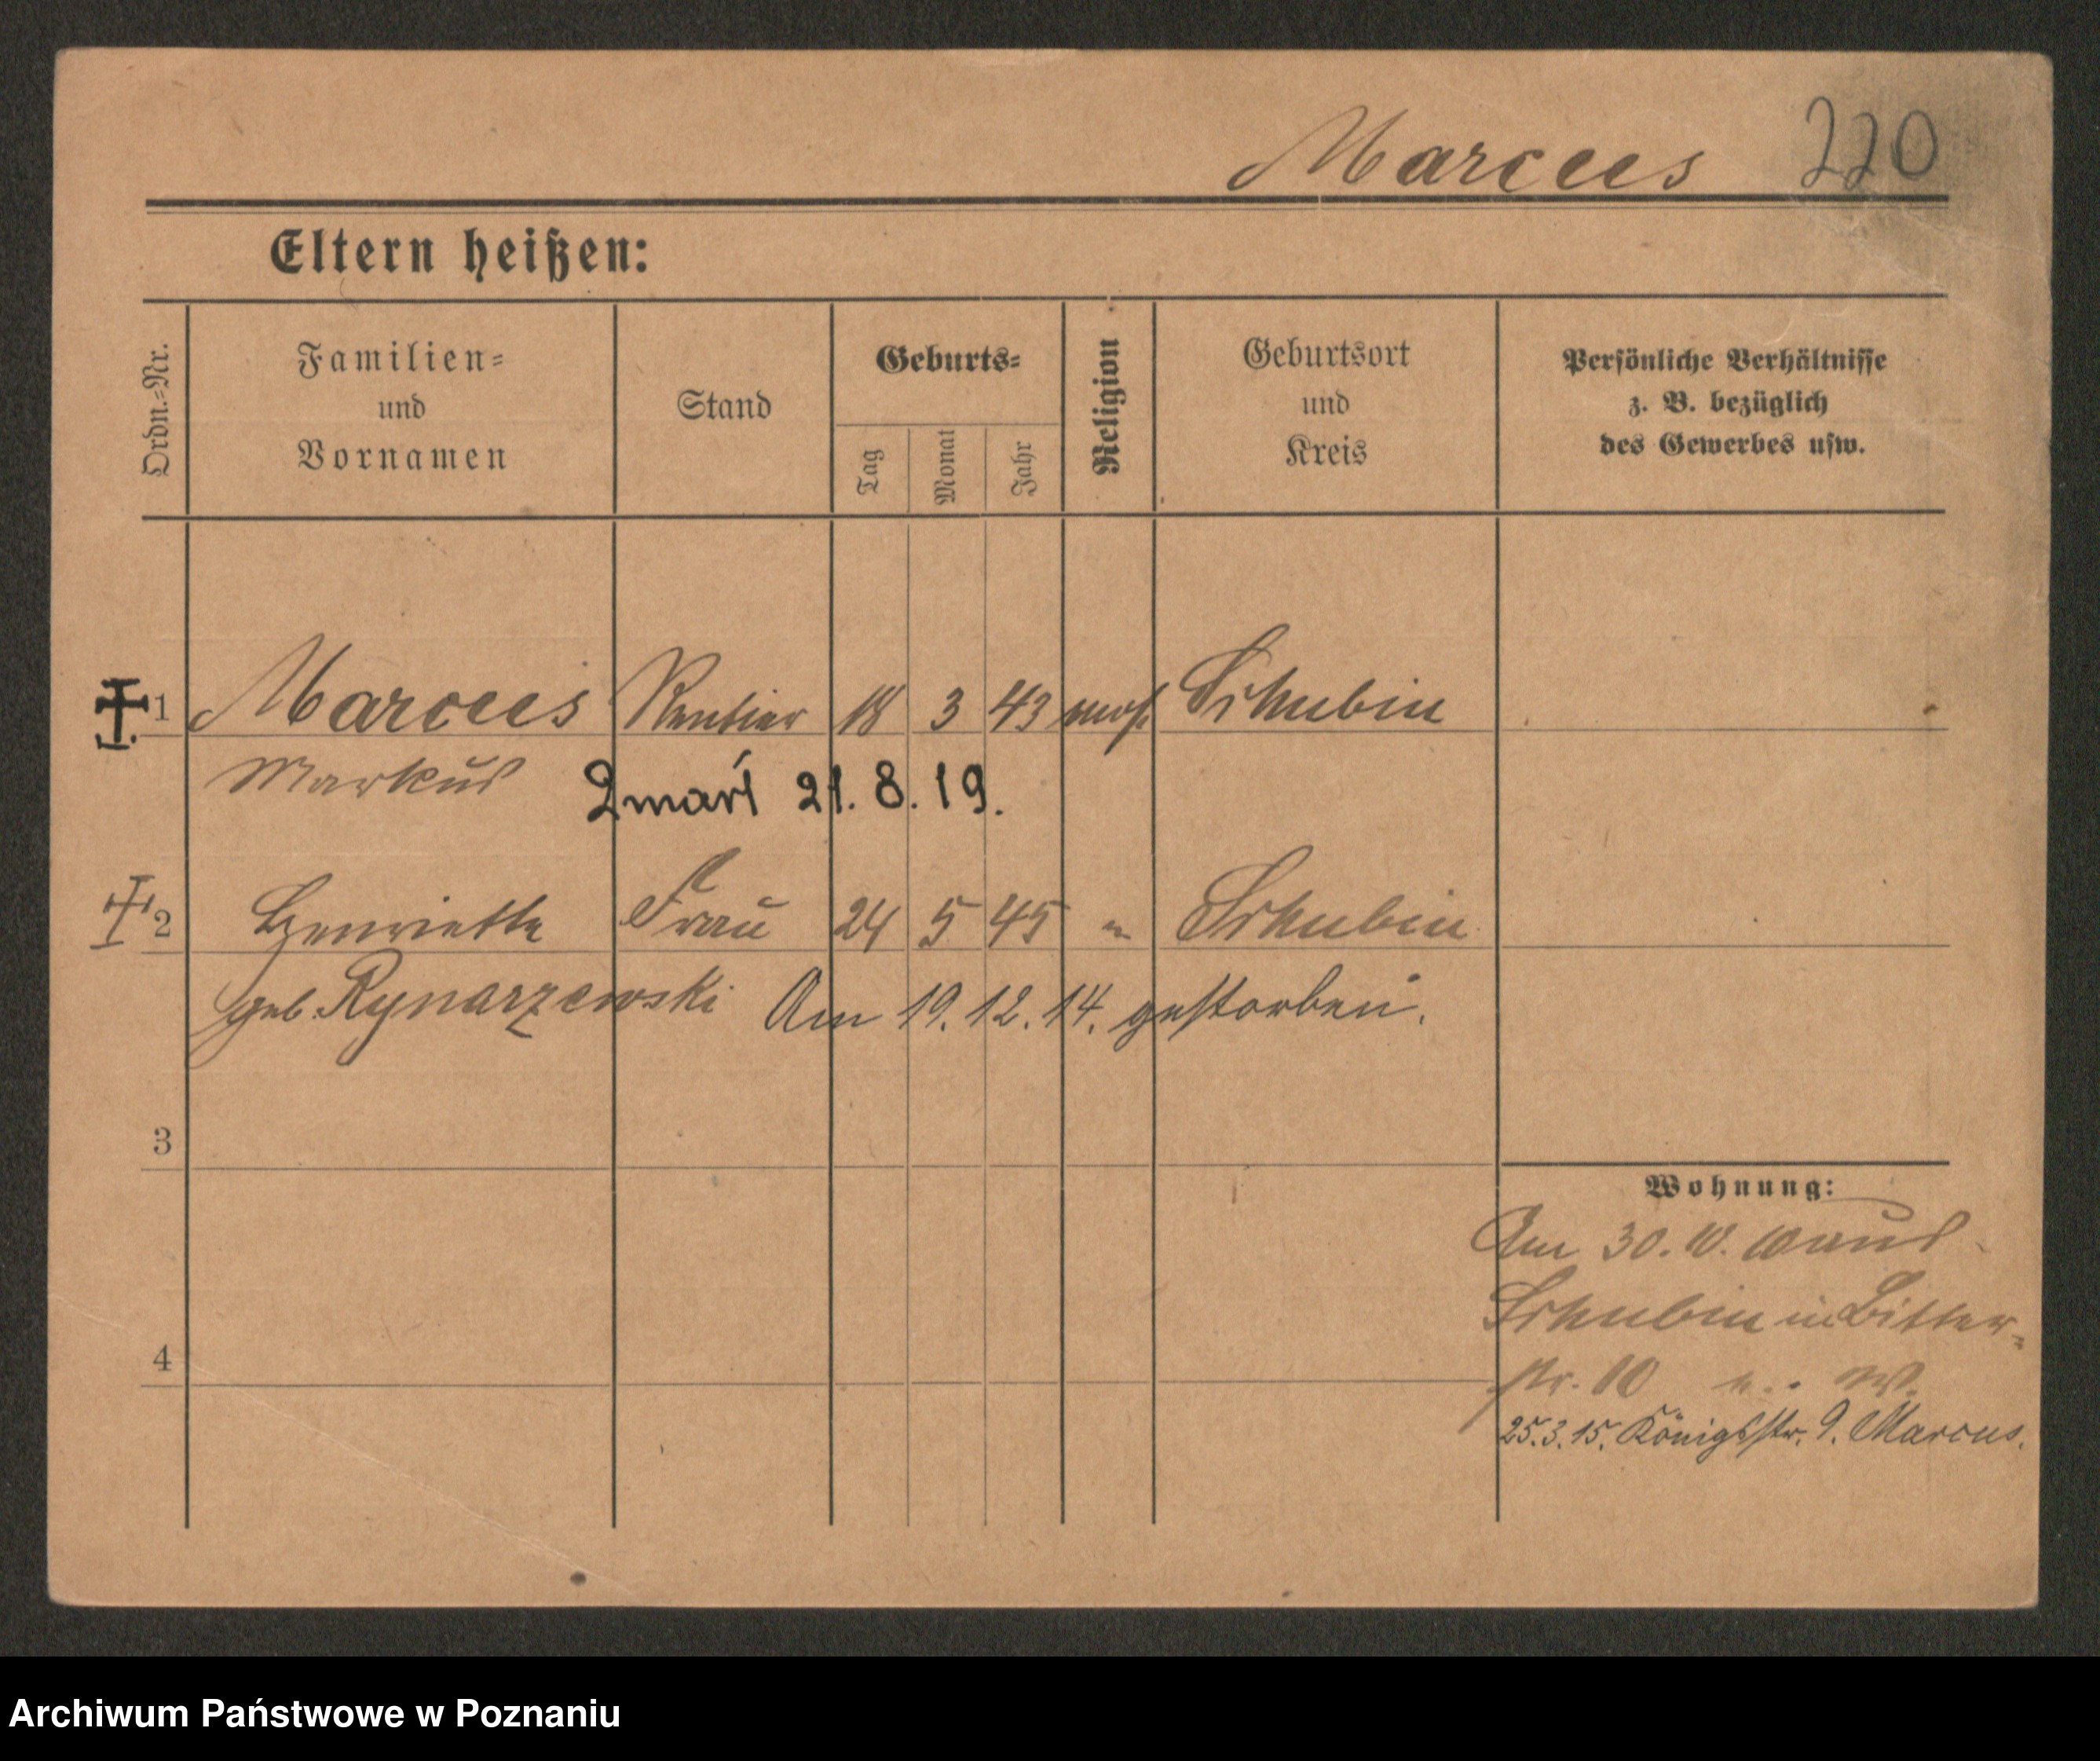 Marcus 220
Eltern heißen:
Ordn.-Nr.
Familien-
und
Vornamen
Stand
Geburts-
Tag
Monat
Jahr
Religion
Geburtsort
und
Kreis
Persönliche Verhältnisse
z. B. bezüglich
des Gewerbes usw.
1 Marcus Rentier 18 3 43 mos. Schubin
Markus Zmarł 21. 8. 19.
2 Henriette Frau 24 5 45 " Schubin
geb. Rynarzewski Am 19. 12. 14. gestorben.
3
Wohnung:
Am 30. 10. aus
Schubin in Ritter-
4
str. 10
25. 3. 15. Königsstr. 9. Marcus.
Archiwum Państwowe w Poznaniu